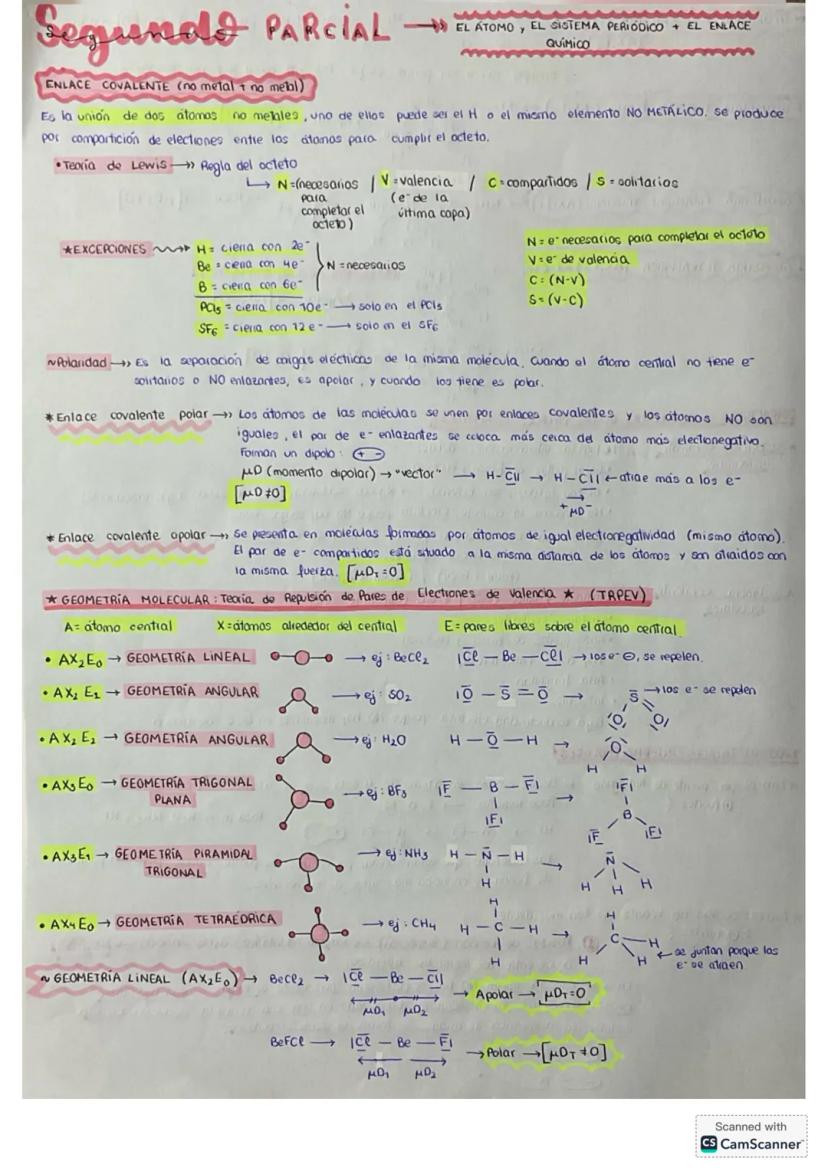 Segundo PARCIAL →» EL ÁTOMO, EL SISTEMA PERIÓDICO + EL ENLACE
QUÍMICO
ENLACE COVALENTE (no metal + no metal)
Es la unión de dos átomos no metales, uno de ellos puede ser el H o el mismo elemento NO METÁLICO. se produce
por compartición de electrones entre los átomos para cumplir el octeto.
• Teoría de Lewis →» Regla del octeto
↳ N = (necesarios / V = valencia / C = compartidos / S = solitarios
para (e⁻ de la
completar el última capa)
octeto)
★EXCEPCIONES → H = cierra con 2e⁻
Be = cierra con 4e⁻ } N = necesarios
B = cierra con 6e⁻
PCl₅ = cierra con 10e⁻ → solo en el PCl₅
SF₆ = cierra con 12e⁻ → solo en el SF₆
N = e⁻ necesarios para completar el octeto
V = e⁻ de valencia
C = (N-V)
S = (V-C)
~Polaridad →» Es la separación de cargas eléctricas de la misma molécula. Cuando el átomo central no tiene e⁻
solitarios o NO enlazantes, es apolar, y cuando los tiene es polar.
* Enlace covalente polar →» Los átomos de las moléculas se unen por enlaces covalentes y los átomos NO son
iguales, el par de e⁻ enlazantes se coloca más cerca del átomo más electronegativo.
Forman un dipolo: (+ -)
μD (momento dipolar) → "vector" → H-Cl → H-Cl ← atrae más a los e⁻
[μD ≠ 0] + μD⁻
* Enlace covalente apolar →» Se presenta en moléculas formadas por átomos de igual electronegatividad (mismo átomo).
El par de e⁻ compartidos está situado a la misma distancia de los átomos y son atraídos con
la misma fuerza. [μD_T = 0]
★ GEOMETRÍA MOLECULAR: Teoría de Repulsión de Pares de Electrones de Valencia ★ (TRPEV)
A = átomo central X = átomos alrededor del central E = pares libres sobre el átomo central
• AX₂E₀ → GEOMETRÍA LINEAL → ej: BeCl₂ |Cl — Be — Cl| → los e⁻ ⊖, se repelen.
• AX₂E₁ → GEOMETRÍA ANGULAR → ej: SO₂ |O — S = O → S → los e⁻ se repelen
O O
• AX₂E₂ → GEOMETRÍA ANGULAR → ej: H₂O H — O — H → O
H H
• AX₃E₀ → GEOMETRÍA TRIGONAL → ej: BF₃ |F — B — F| → |F|
PLANA |F| B
|F F|
• AX₃E₁ → GEOMETRÍA PIRAMIDAL → ej: NH₃ H — N — H → N
TRIGONAL H H H H
• AX₄E₀ → GEOMETRÍA TETRAÉDRICA → ej: CH₄ H
H — C — H → H
H C H
H H ← se juntan porque los
e⁻ se atraen
~ GEOMETRÍA LINEAL (AX₂E₀) → BeCl₂ → |Cl — Be — Cl| → Apolar → μD_T = 0
μD₁ μD₂
BeFCl → |Cl — Be — F| → Polar → [μD_T ≠ 0]
μD₁ μD₂
Scanned with
CS CamScanner